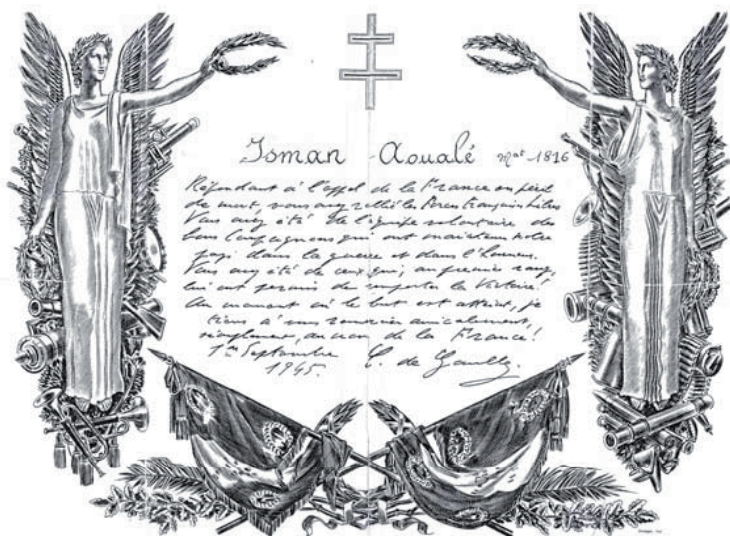 Isman Aoualé Mat 1816
Répondant à l'appel de la France en péril
de mort, vous avez rallié les Forces françaises libres
Vous avez été de l'équipe volontaire des
bons Compagnons qui ont maintenu notre
pays dans la guerre et dans l'honneur.
Vous avez été de ceux qui, au premier rang,
lui ont permis de remporter la Victoire!
Au moment où le but est atteint, je
tiens à vous remercier amicalement,
simplement, au nom de la France!
1er Septembre
1945. C. de Gaulle.